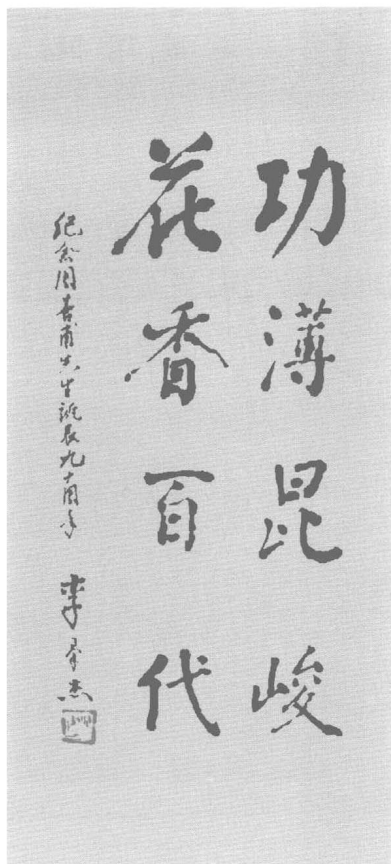 功薄昆峻
花香百代
纪念周善甫先生诞辰九十周年
李群杰